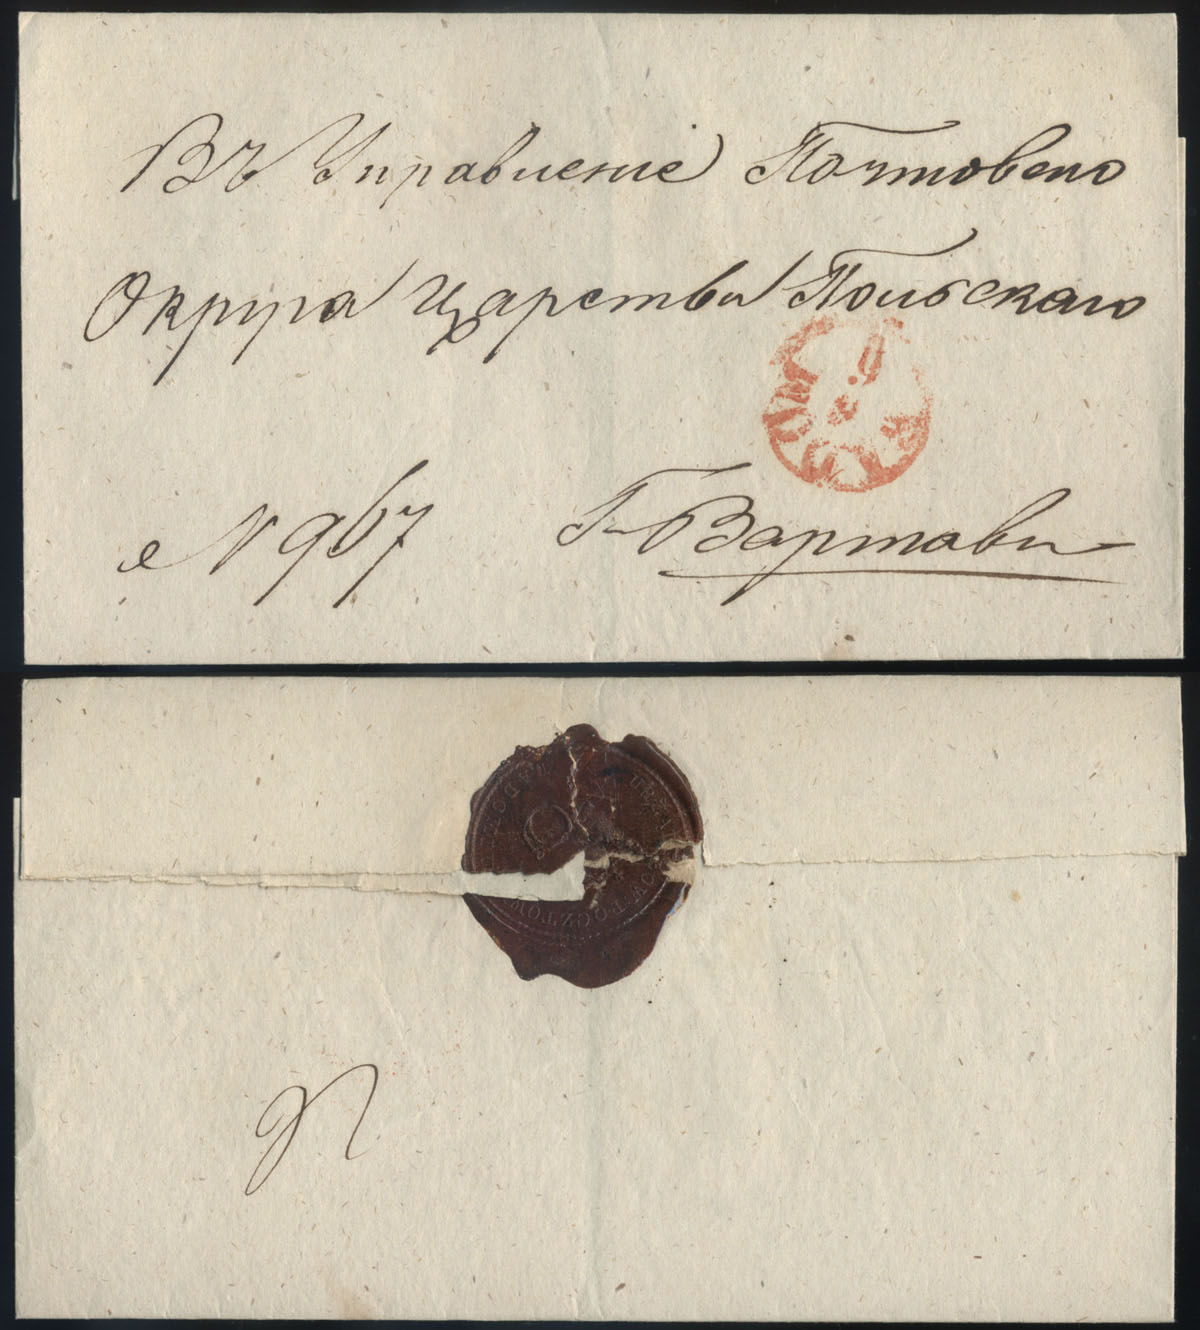 Въ Управленіе Почтоваго
Округа Царства Польскаго
№ 967
Г. Варшава
POCZTOW